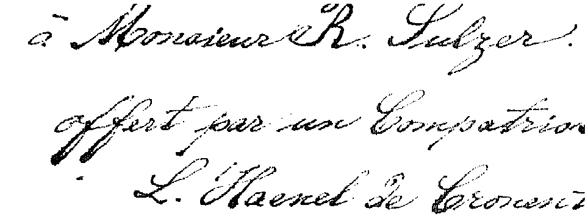 à Monsieur R. Sulzer.
offert par un Compatrio
L. Haenel de Cronen